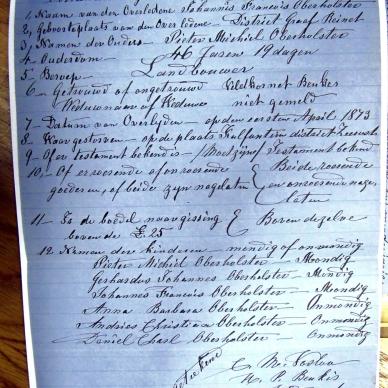 1. Naam van den Overledene Johannes Francois Oberholster
2, Geboortplaats van den Overledene - District Graaf Reinet
3, Namen der Ouders Pieter Michiel Oberholster
4 - Ouderdom 46 Jaren 19 dagen
5 - Beroep Landbouwer
6 - getrouwd of ongetrouwd
Weduwnaar of Weduwe niet gemeld
7 - Datum van Overlyden - op den eersten April 1873
8 - Waar gestorven - op de plaats district
9 - Of er testament bekend is - Testament bekend
10, - Of er roerende of onroerende Beide roerende
goederen, of beide zyn nagelaten en onroerende nage
laten
11 - Is de boedel naar gissing Boven dezelve
boven de £25
12. Namen der kinderen mondig of onmondig
Pieter Michiel Oberholster - Mondig
Gerhardus Johannes Oberholster - Mondig
Johannes Francois Oberholster - Mondig
Anna Barbara Oberholster - Onmondig
Andries Christiaan Oberholster - Onmondig
Daniel Oberholster - Onmondig